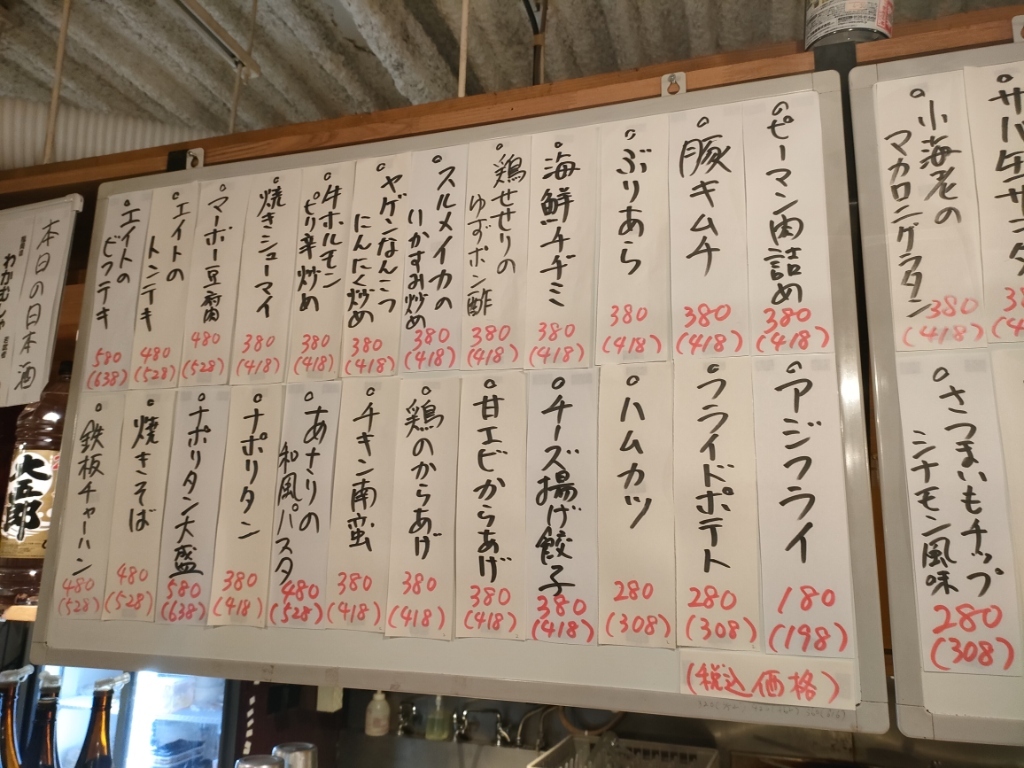 サバ
小海老の
マカロニグラタン
380
(418)
さつまいもチップ
シナモン風味
280
(308)
ピーマン肉詰め
380
(418)
豚キムチ
380
(418)
ぶりあら
380
(418)
海鮮チヂミ
380
(418)
鶏せせりの
ゆずポン酢
380
(418)
スルメイカの
いかすみ炒め
380
(418)
ヤゲンなんこつ
にんにく炒め
380
(418)
牛ホルモン
ピリ辛炒め
380
(418)
焼きシューマイ
380
(418)
マーボー豆腐
480
(528)
エイトの
トンテキ
480
(528)
エイトの
ビフテキ
580
(638)
アジフライ
180
(198)
フライドポテト
280
(308)
ハムカツ
280
(308)
チーズ揚げ餃子
380
(418)
甘エビからあげ
380
(418)
鶏のからあげ
380
(418)
チキン南蛮
380
(418)
あさりの
和風パスタ
480
(528)
ナポリタン
380
(418)
ナポリタン大盛
580
(638)
焼きそば
480
(528)
鉄板チャーハン
480
(528)
(税込価格)
本日の日本酒
わかむしゃ
大五郎